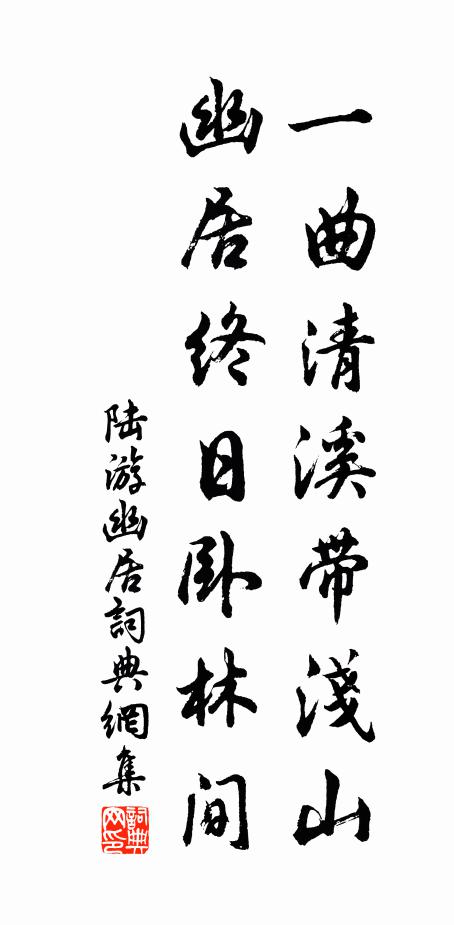 一曲清溪帶淺山
幽居終日卧林间
陆游幽居詞典網集
詞典网印